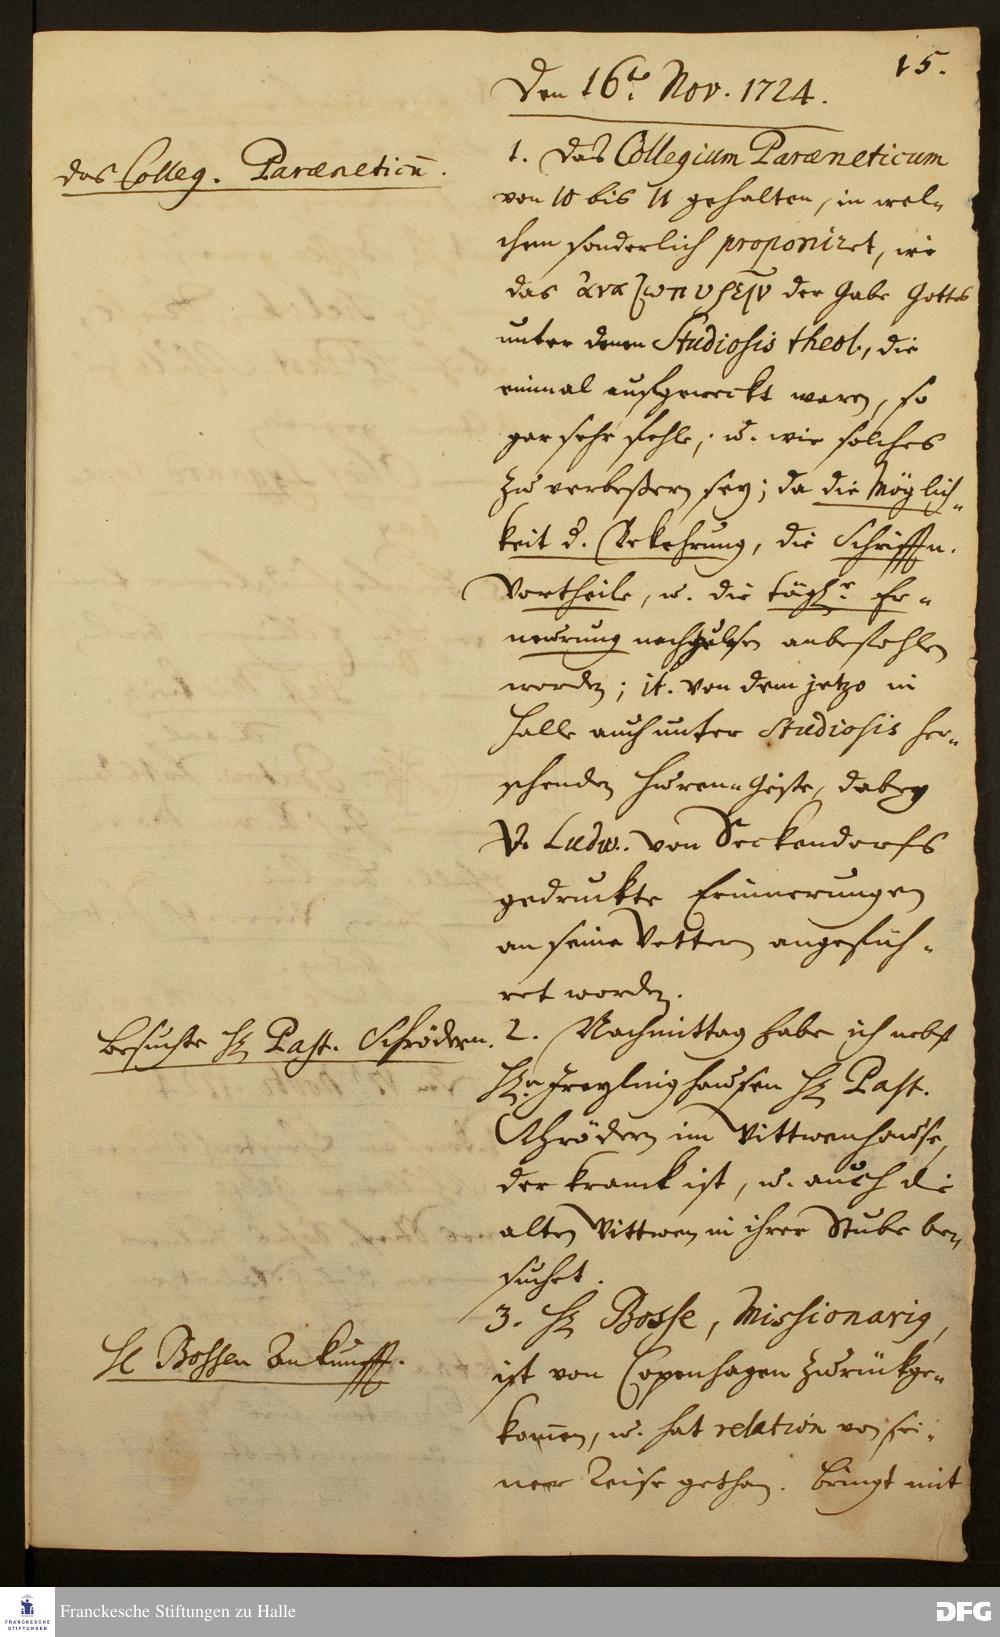 15.
Den 16t. Nov. 1724.
das Colleg. Paræneticū.
1. das Collegium Paræneticum
von 10 bis 11 gehalten, in wel-
chem sonderlich proponiret, wie
das ἀναζωπυρεῖν der Gabe Gottes
unter denen Studiosis theol., die
einmal aufgeweckt waren, so
gar sehr fehle, u. wie solches
zu verbeßern sey; da die Möglich-
keit d. Bekehrung, die Schrifften.
Vortheile, u. die tägl. Er-
neurung anbefohlen
worden; it. von dem jetzo in
Halle auch unter Studiosis her-
schenden Huren-Geiste, dabey
V. Ludw. von Seckendorfs
gedruckte Erinnerungen
an seine Vettern angefüh-
ret worden.
Besuchte H. Past. Schrödern.
2. Nachmittag habe ich nebst
H. Freylinghausen H. Past.
Schrödern im Wittwenhause,
der kranck ist, u. auch die
alten Wittwen in ihrer Stube be-
suchet.
3. H. Bosse, Missionarius,
H Bossen Ankunfft.
ist von Copenhagen zurückge-
kom̄en, u. hat relation von sei-
ner Reise gethan. bringt mit
Franckesche Stiftungen zu Halle
FRANCKESCHE
STIFTUNGEN
DFG